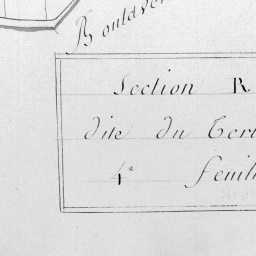 Boulever
Section R.
dite du Tert
4e feuill